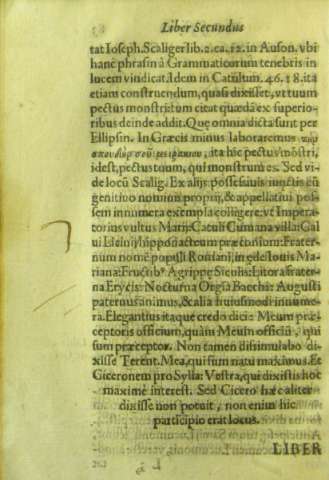 Liber Secundus
tat Ioseph. Scaliger lib. 2. ca. 12. in Auson. vbi
hanc phrasin à Grammaticorum tenebris in
lucem vindicat. Idem in Catulum. 46. 18. ita
etiam construendum, quasi dixisset, vt tuum
pectus monstrum citat quædã ex superio-
ribus deinde addit. Que omnia dicta sunt per
Ellipsin. In Græcis minus laboraremus
, ita hic pectus nostri,
idest, pectus tuum, qui monstrum es. Sed vi-
de locũ Scalig. Ex alijs possessiuis iunctis cũ
genitiuo nominũ proprij, & appellatiui pos-
sem innumera exempla colligere: vt Impera-
torius vultus Marij: Catuli Cumana villa: Cal
ui Licinij hippōnacteum præconium: Frater-
num nomẽ populi Romani, in ęde Iouis Ma-
riana: Fructibꝰ Agrippę Siculis: Litora frater-
na Erycis: Nocturna Orgia Bacchi: Augusti
paternus animus, & alia huiusmodi innume-
ra. Elegantius itaque credo dici: Meum præ-
ceptoris officium, quàm Meum officiũ, qui
sum præceptor. Non tamen dissimulabo di-
xisse Terent. Mea, qui sum natu maximus. Et
Ciceronem pro Sylla: Vestra, qui dixistis hoc
maximè interest. Sed Cicero hæc aliter
dixisse non potuit, non enim hic
participio erat locus.
LIBER